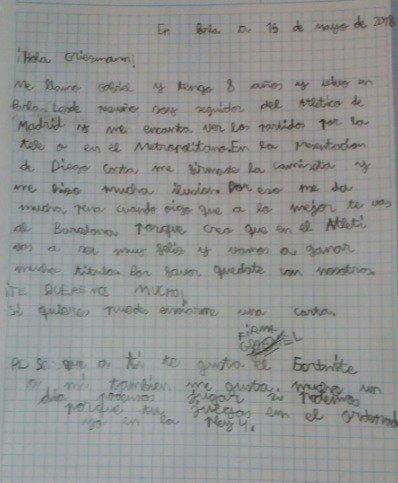 En Borla a 15 de mayo de 2018
¡Hola Griezmann!
Me llamo Gabriel y tengo 8 años y vivo en
Borla. Desde pequeño soy seguidor del Atletico de
Madrid y me encanta ver los partidos por la
tele o en el Metropolitano. En la presentacion
de Diego Costa me firmaste la camiseta y
me hizo mucha ilusion. Por eso me da
mucha pena cuando oigo que a lo mejor te vas
al Barcelona porque creo que en el Atleti
vas a ser muy feliz y vamos a ganar
muchos titulos. Por favor quedate con nosotros.
¡TE QUEREMOS MUCHO!
Si quieres puedes enviarme una carta.
FIRMA
PD Se que a ti te gusta el Fortnite
a mi tambien me gusta mucho un
dia podemos jugar si podemos
porque tu juegas en el ordenador
yo en la Play 4.